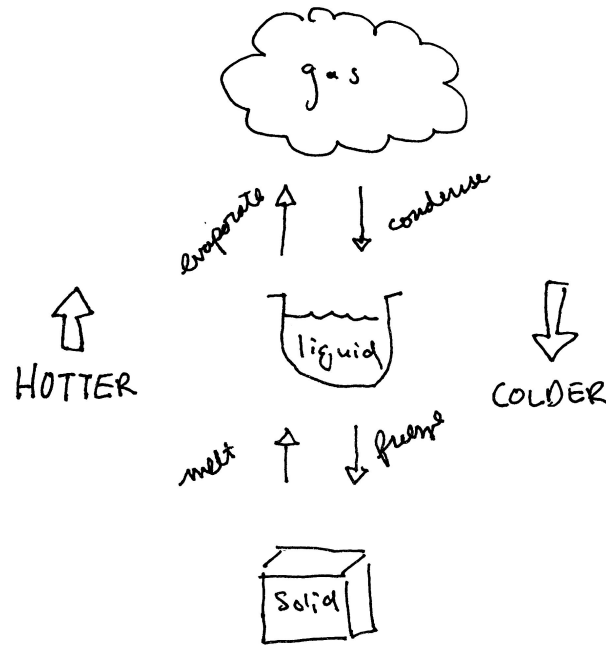 gas
evaporate
condense
liquid
HOTTER
COLDER
melt
freeze
Solid